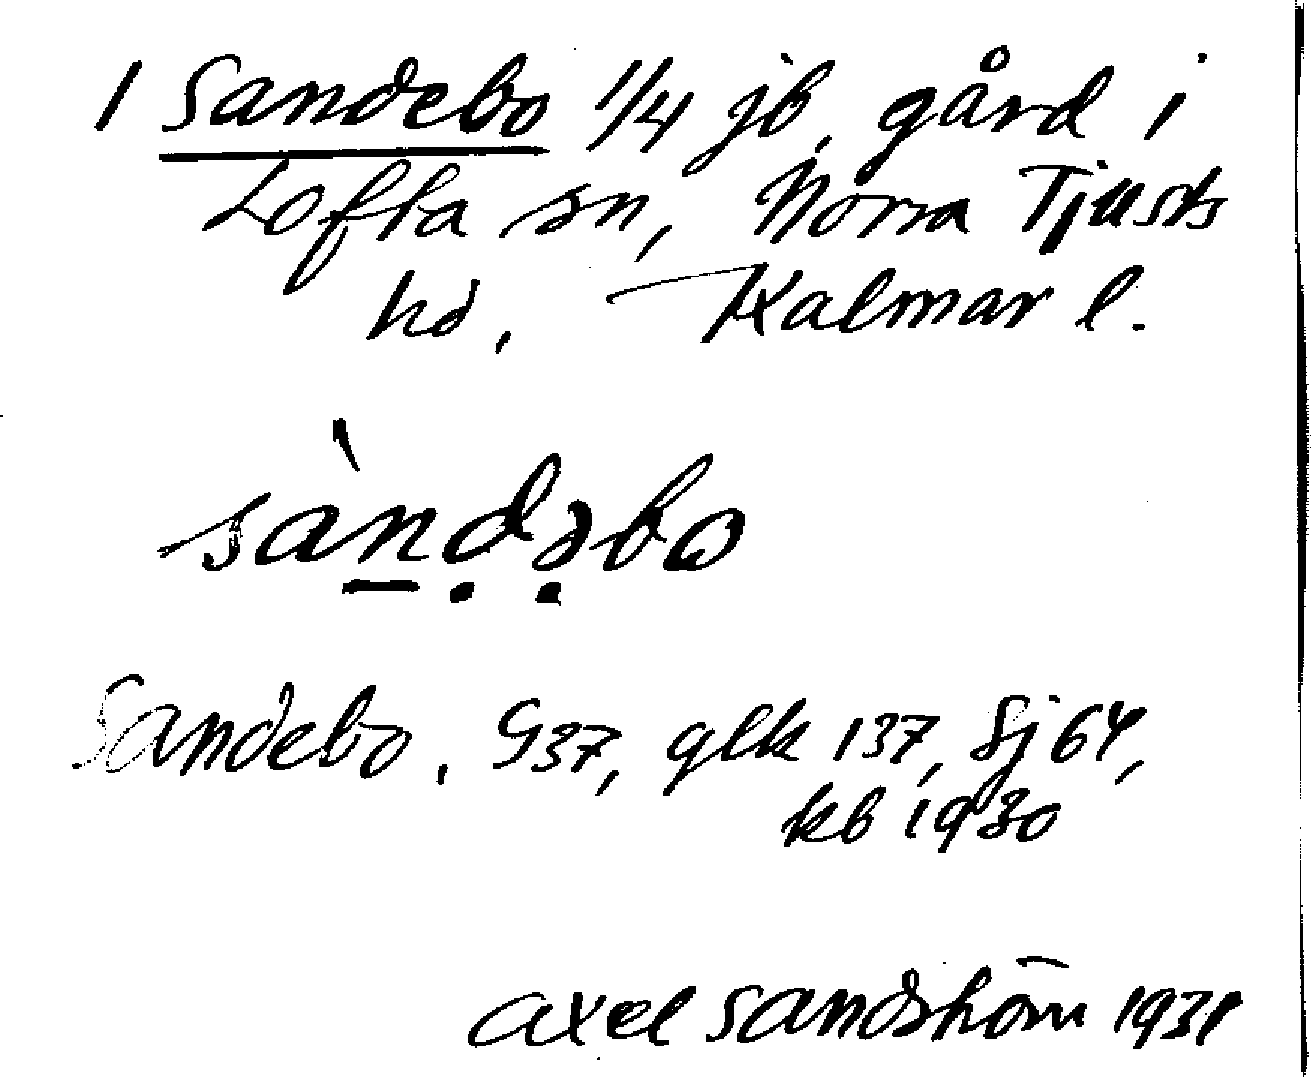 1 Sandebo 1/4 jb, gård i
Lofta sn, Norra Tjusts
hd, Kalmar l.
sàndəbo
Sandebo, G37, glk 137, Sj 64,
kb 1930
Axel Sandström 1931